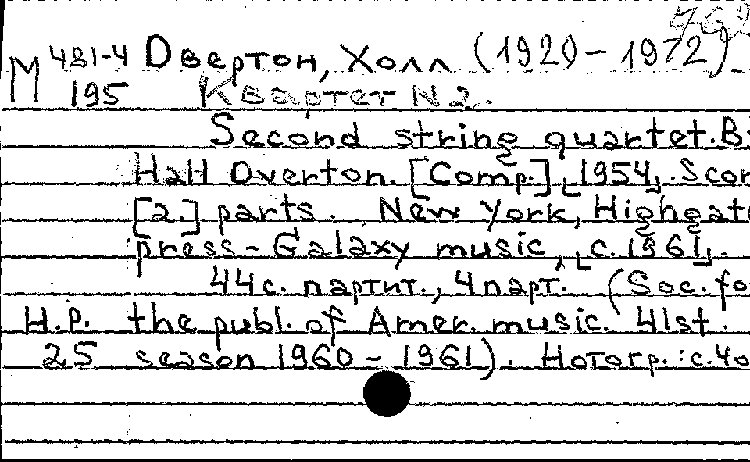 М 481-4 Овертон, Холл (1920-1972)
195 Квартет N 2.
Second string quartet. B
Hall Overton. [Comp.] 1954. Scor
[2.] parts. New York, Highgat
press-Galaxy music, c. 1961.
44с. партит., 4 парт. (Soc. fo
Н.Р. the publ. of Amer. music. 41st.
25 season 1960-1961). Нотогр.: с. 40